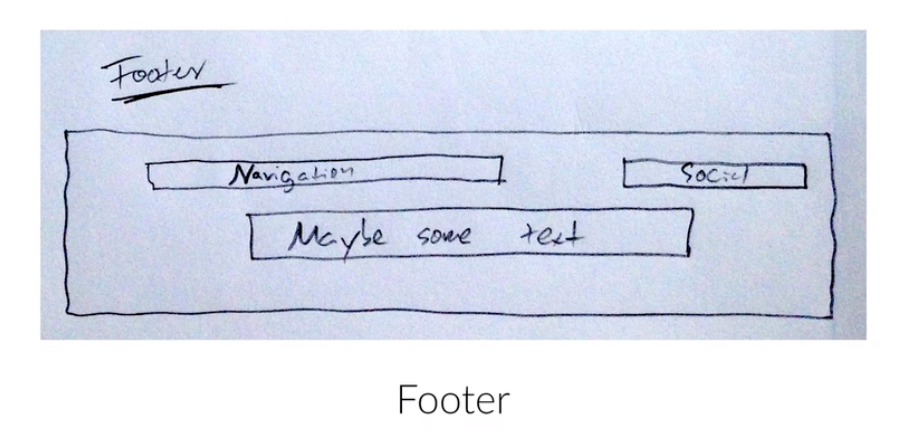 Footer
Navigation
Social
Maybe some text
Footer